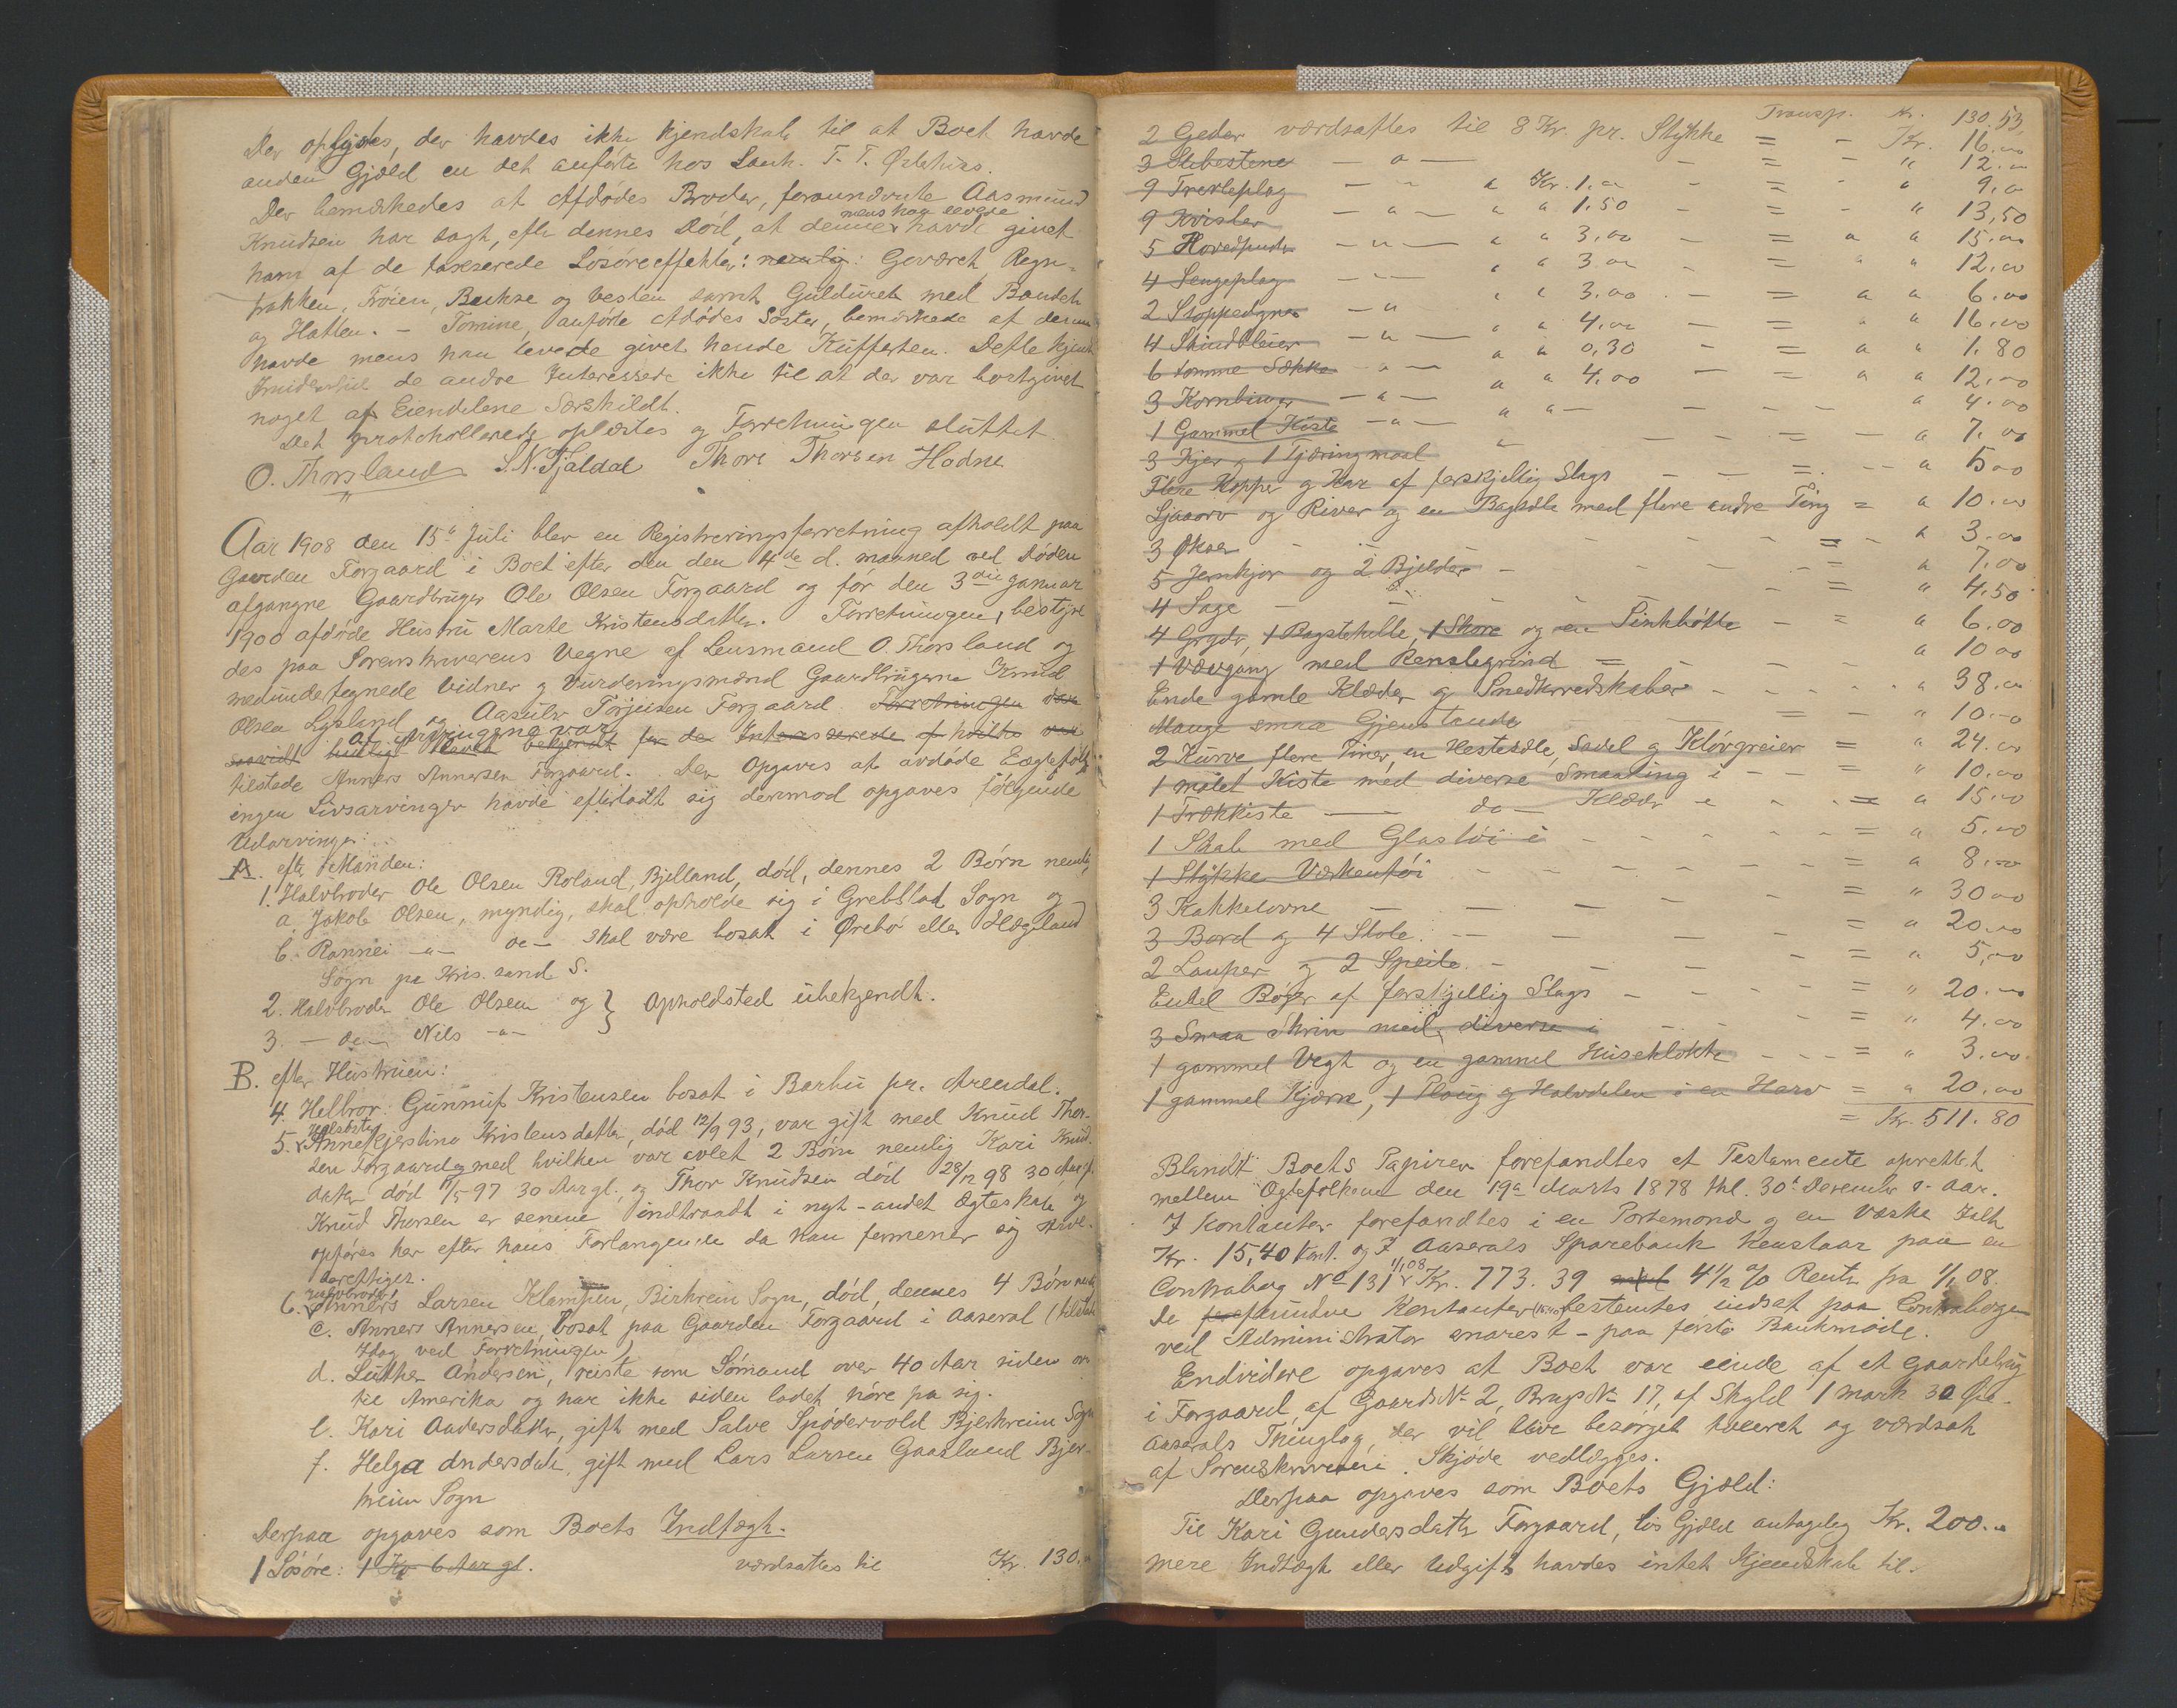 Der oplystes, der havdes ikke kjendskab til at Boet havde
anden Gjæld en det anførte hos Lanh. T. T.
Der bemærkedes at Afdødes Broder, foranævnte Aasmund
Knudsen har sagt, efter dennes Død, at denne mens han levede havde givet
ham af de taxerede Løsøreeffekter: nemlig: Geværet, Regn-
frakken, Trøien, Buxse og Vesten samt Gulduret med Baandet
og Hatten. - Tomine, anførte Afdødes Søster, bemærkede at denne
havde mens han levede givet hende Kufferten. Dette kjendte
de andre Interessede ikke til at der var bortgivet
noget af Eiendelene Særskildt.
Det protokollerede oplæstes og Forretningen sluttet.
O. Thorsland S. N. Fjaldal Thore Thorsen Hodne
Aar 1908 den 15de Juli blev en Registreringsforretning afholdt paa
Gaarden Forgaard i Boet efter den den 4de d. maaned ved Døden
afgangne Gaardbruger Ole Olsen Forgaard og før den 3die Januar
1900 afdøde Hustru Marte Kristensdatter. Forretningen, bestyre
des paa Sorenskriverens Vegne af Lensmand O. Thorsland og
medundertegnede Vidner og Vurderingsmænd Gaardbrugerne Knud
Olsen Lysland og Aasulv Torjusen Forgaard. Forretningen
af Arvingerne var
tilstede Anners Annersen Forgaard. Der Opgaves at avdøde Egtefolk
ingen Livsarvinger havde efterladt sig derimod opgaves følgende
Udarvinger:
A. efter Manden:
1. Halvbroder Ole Olsen Roland, Bjelland, død, dennes 2 Børn nemlig
a. Jakob Olsen, myndig, skal opholde sig i Grebstad Sogn og
b. Rannei -"- do - skal være bosat i Øvrebø eller Hægeland
Sogn pr Kris.sand S.
2. Halvbroder Ole Olsen og } Opholdsted ubekjendt.
3. - do - Nils -"-
B. efter Hustruen:
4. Helbror: Gunnuf Kristensen bosat i Barbu pr. Arendal.
5. Helsøster Anne Kjerstine Kristensdatter, død 12/9 93, var gift med Knud Thor-
sen Forgaard, med hvilken var avlet 2 Børn nemlig Kari Knuds
datter død 17/5 97 30 Aar gl. og Thor Knudsen død 28/12 98 30 Aar gl.
Knud Thorsen er senere indtraadt i nyt - andet Ægteskab og
opføres her efter hans Forlangende da han formener sig arve-
berettiget.
6. Halvbroder Anners Larsen Klampen, Birkrem Sogn, død, dennes 4 Børn nemlig
c. Anners Annersen, bosat paa Gaarden Forgaard i Aaseral (tilstede
Idag ved Forretningen)
d. Luther Andersen, reiste som Sømand over 40 Aar siden
til Amerika og har ikke siden ladet høre fra sig.
e. Kari Andersdatter, gift med Salve Spødervold Bjerkreim Sogn
f. Helga Andersdatt. gift med Lars Larsen Gaasland Bjer-
kreim Sogn
Derpaa opgaves som Boets Indtægt.
1 Løsøre: 1 Ko 6 Aar gl. værdsattes til Kr. 130
Transp. Kr. 130,53
2 Geder værdsattes til 8 Kr. pr. Stykke = - Kr. 16.00
3 - " - = - " 12.
9 - " a Kr. 1. - = - " 9.
9 - " - " " 1.50 - = - " 13,50
5 Hovedputer - " - " " 3.00 - = " " 15.00
4 Sengeplag - " " 3.00 - = " " 12.00
2 Stoppedyner - " " " 3.00 - = " " 6.00
4 Skindfleier - " - " " 4.00 - = " " 16.00
6 tomme Sække - " - " " 0,30 - = " " 1.80
3 Kornbinger - " - " " 4.00 - = " " 12.00
1 Gammel Kiste - " - " " - - - - " 4.00
3 Kjer og 1 Tjæringmaal - - = - " 7.00
Flere Kopper og Kar af forskjellig Slags - - = - " 5.00
Ljaaorv og River og en Bagsæle med flere andre Ting = " 10.00
3 Økser - - - - - - = - " 3.00
5 Jernkjør og 2 Bjelder - - - - = " 7.00
4 Sage - - - - - - = " 4.50
4 Gryder, 1 Bagstehelle, 1 Skore og en Sinkbøtte - = " 6.00
1 Vævgang med Renslegrind = - - - - " 10.00
Ende gamle Klæder og Smedkeredskaber - - - - " 38.
Mange smaa Gjenstande - - - = - " 10.00
2 Kurve, flere Tiner, en Hestesæle, Sadel og Kløvgreier = " 24.
1 malet Kiste med diverse Smaating i - - = " 10.00
1 Trækkiste - do - Klæder i - - = " 15.00
1 Skab med Glastøi i - - - - = " 5.00
1 Stykke Værkentøi - - - - = " 8.00
3 Kakkelovne - - - - = " 30.00
3 Bord og 4 Stole - - - - = " 20.00
2 Lamper og 2 Speile - - - - = " 5.00
Endel Bøger af forskjellig Slags - - - - = " 20.00
3 Smaa Skrin med diverse i - - - = " 4.00
1 gammel Vegt og en gammel Huseklokke - - = " 3.00
1 gammel Kjærre, 1 Ploug og Halvdelen i en Harv = " 20.00
= Kr. 511.80
Blandt Boets Papirer forefandtes et Testamente oprettet
mellem Ægtefolkene den 19de Marts 1878 thl. 30te Decembr s. Aar.
I Kontanter forefandtes i en Portemonæ og en Væske Ialt
Kr. 15,40 Kont. og I Aaserals Sparebank henstaar paa en
Contrabog No 131 1/1 08 Kr. 773.39 med 4 1/2 % Rente fra 1/1 08.
De fundne Kontanter bestemtes indsat paa Contrabogen
ved Administrator snarest - paa første Bankmøde.
Endvidere opgaves at Boet var eiende af et Gaardebrug
i Forgaard, af Gaards No 2, Brugs No 17, af Skyld 1 mark 30 Øre.
Aaserals Thinglag, der vil blive besørget taxeret og værdsat
af Sorenskriveren. Skjøde vedlægges.
Derpaa opgaves som Boets Gjæld:
Til Kari Gundersdatter Forgaard, løs Gjæld antagelig Kr. 200.
mere Indtægt eller Udgift havdes intet Kjendskab til.